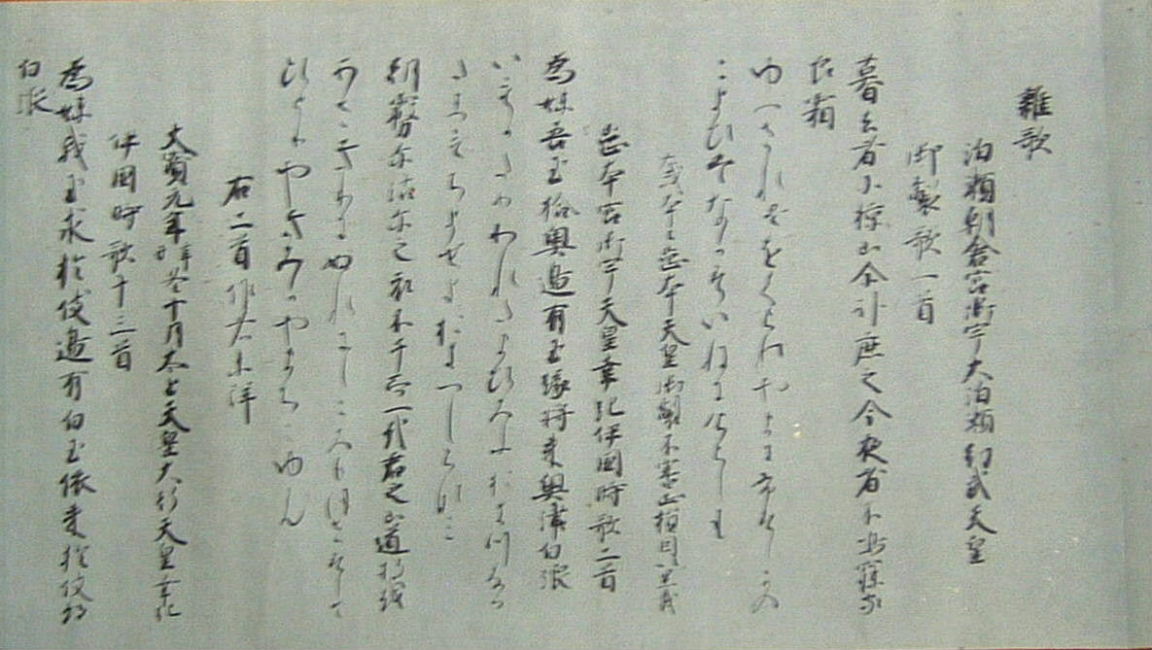 雜歌
泊瀬朝倉宮御宇大泊瀬幼武天皇
御製歌一首
暮去者小椋山尓臥鹿之今夜者不鳴寐家
良霜
ゆふされはをくらのやまにふすしかの
こよひはなかすいねにけらしも
或本云崗本天皇御製不審正指因以累戴
崗本宮御宇天皇幸紀伊國時歌二首
為妹吾玉拾奥邊有玉縁持来奥津白浪
いもかためわれたまひろふおきへなる
たまもちよせよおきつしらなみ
朝霧尓沾尓之衣不干而一哉君之山道将越
あさきりにぬれにしころもほさすして
ひとりやきみかやまち ゆらん
右二首作者未詳
大寶元年辛丑冬十月太上天皇大行天皇幸紀
伊國時歌十三首
為妹我玉求於伎邊有白玉依来於伎都
白浪